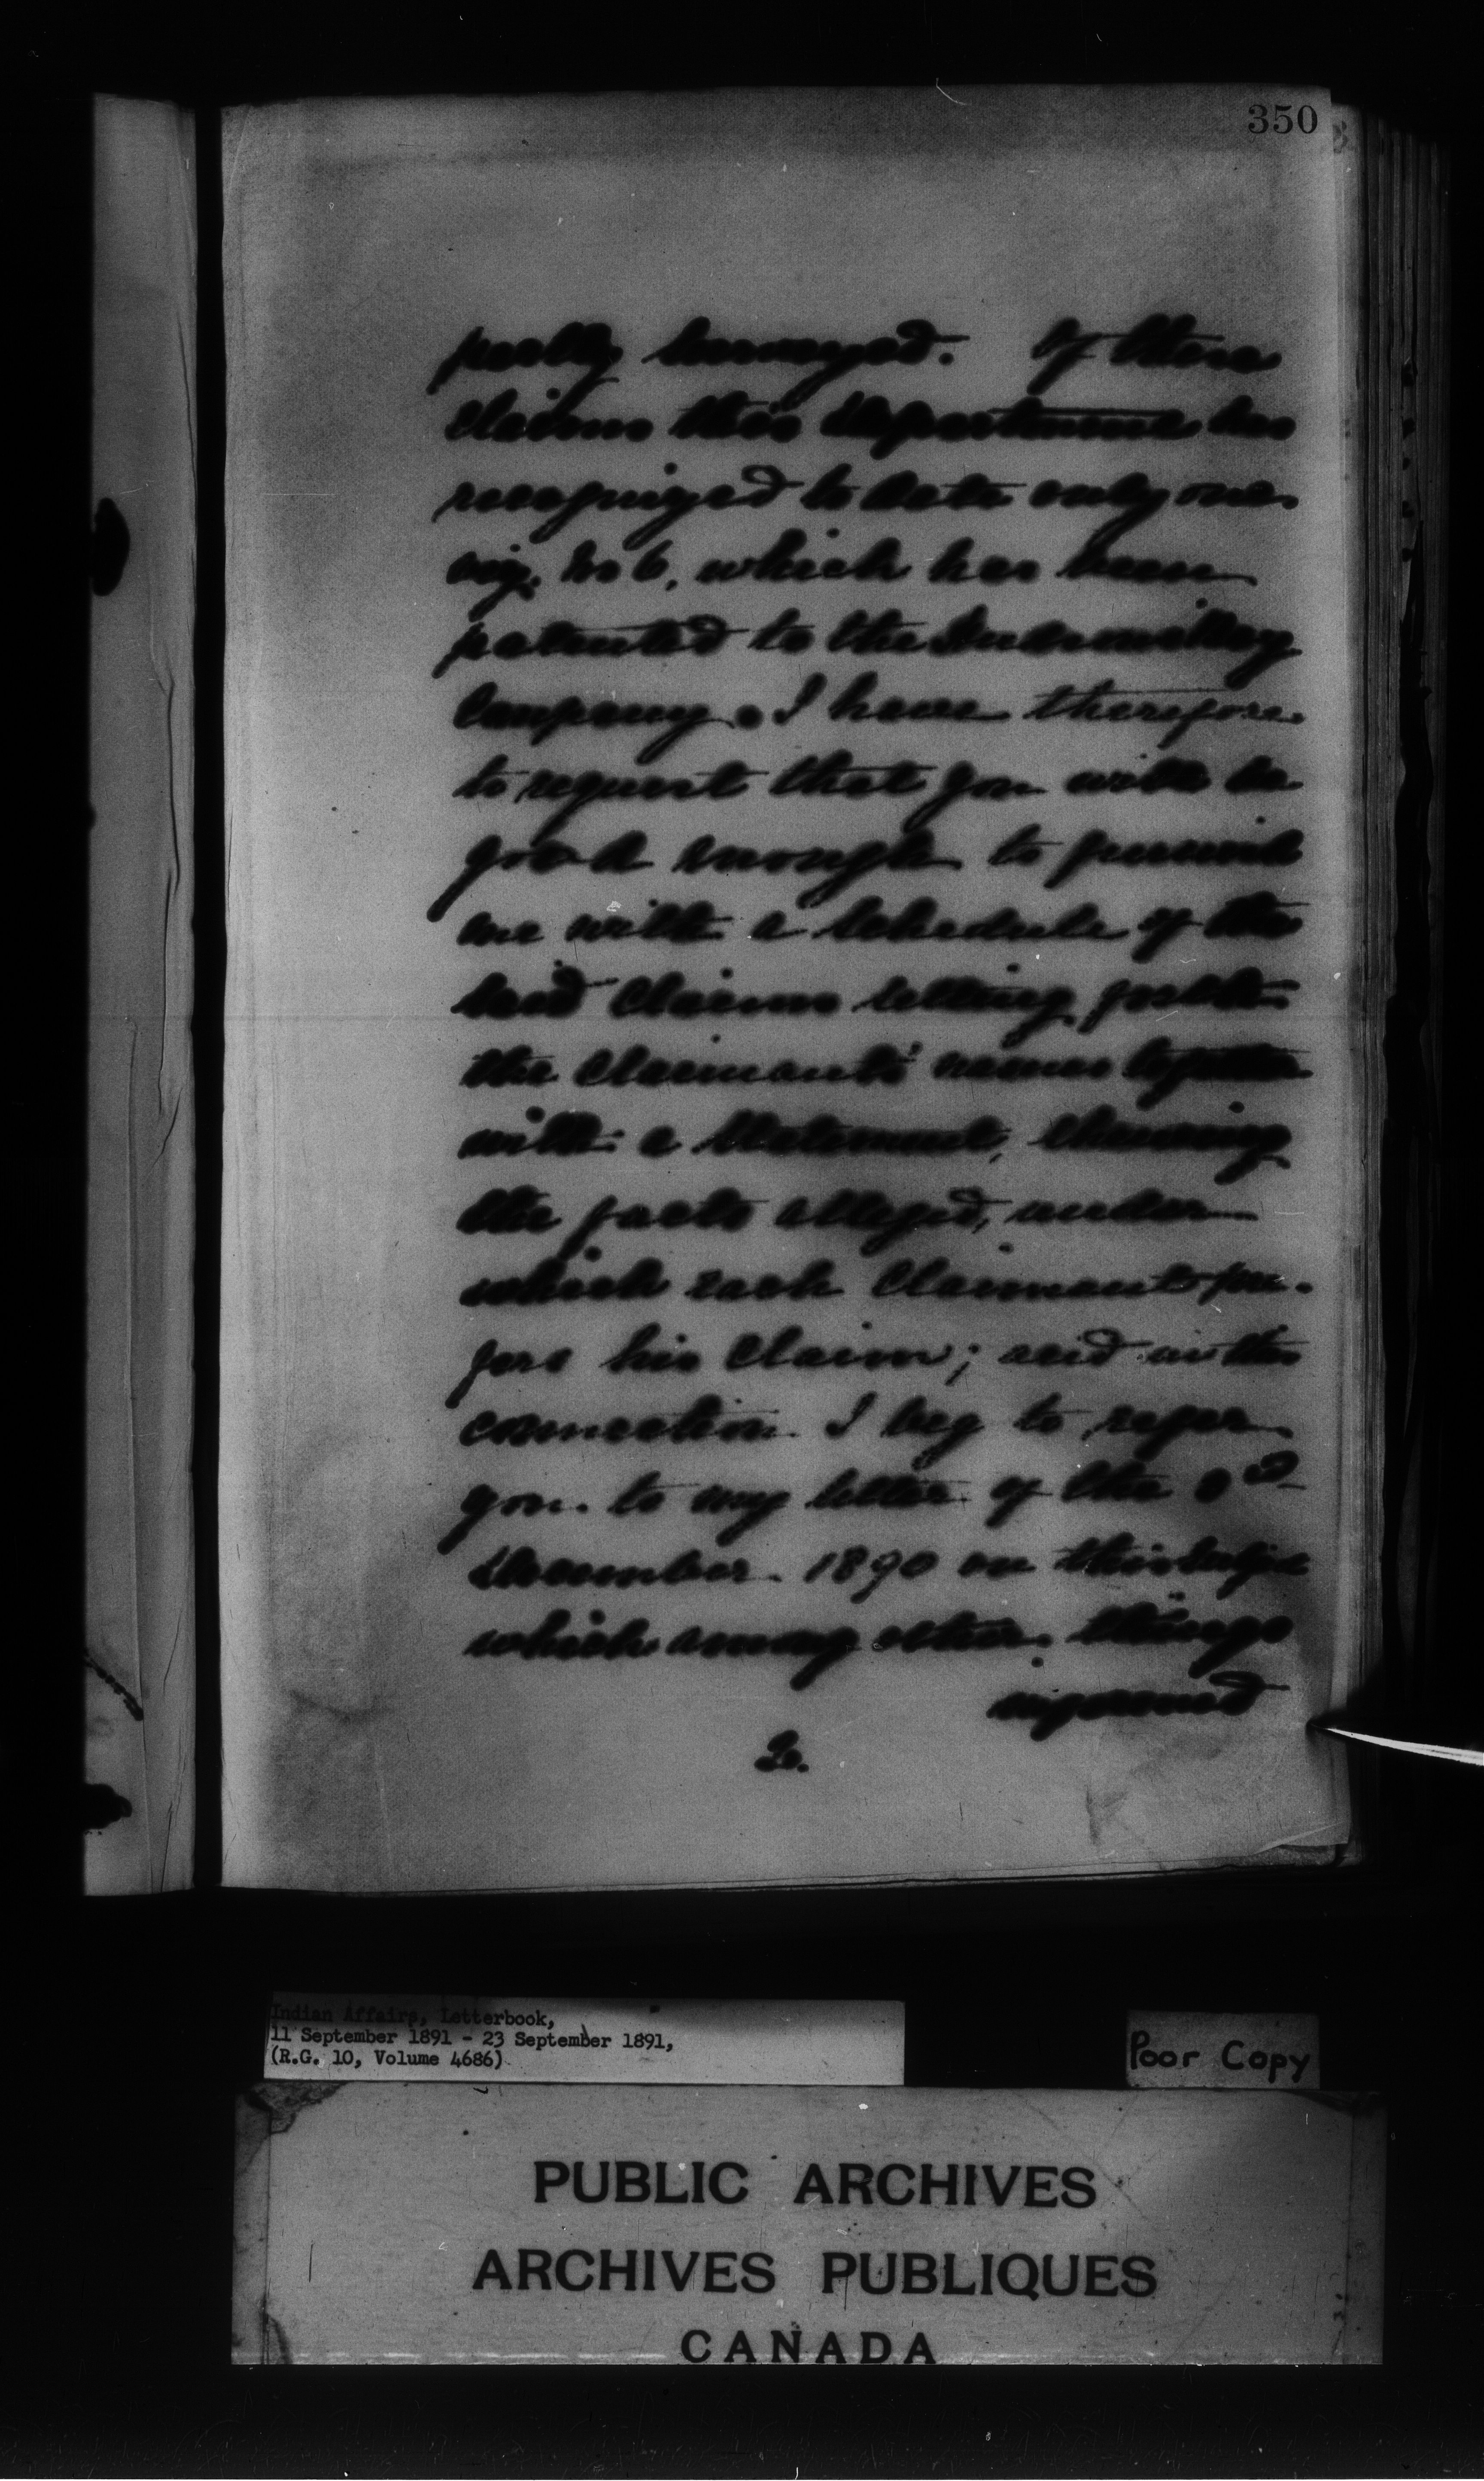 350
partly surveyed. Of these
claims this Department has
recognized to date only one
viz. No 6, which has been
patented to the
Company. I have therefore
to request that you will be
good enough to furnish
me with a schedule of the
said claims setting forth
the claimants' names together
with a statement, showing
the facts alleged, under
which each claimant pre-
fers his claim; and in this
connection I beg to refer
you to my letter of the
December 1890 on this subject
which among other things
2.
Indian Affairs, Letterbook,
11 September 1891 - 23 September 1891,
(R.G. 10, Volume 4686)
Poor Copy
PUBLIC ARCHIVES
ARCHIVES PUBLIQUES
CANADA